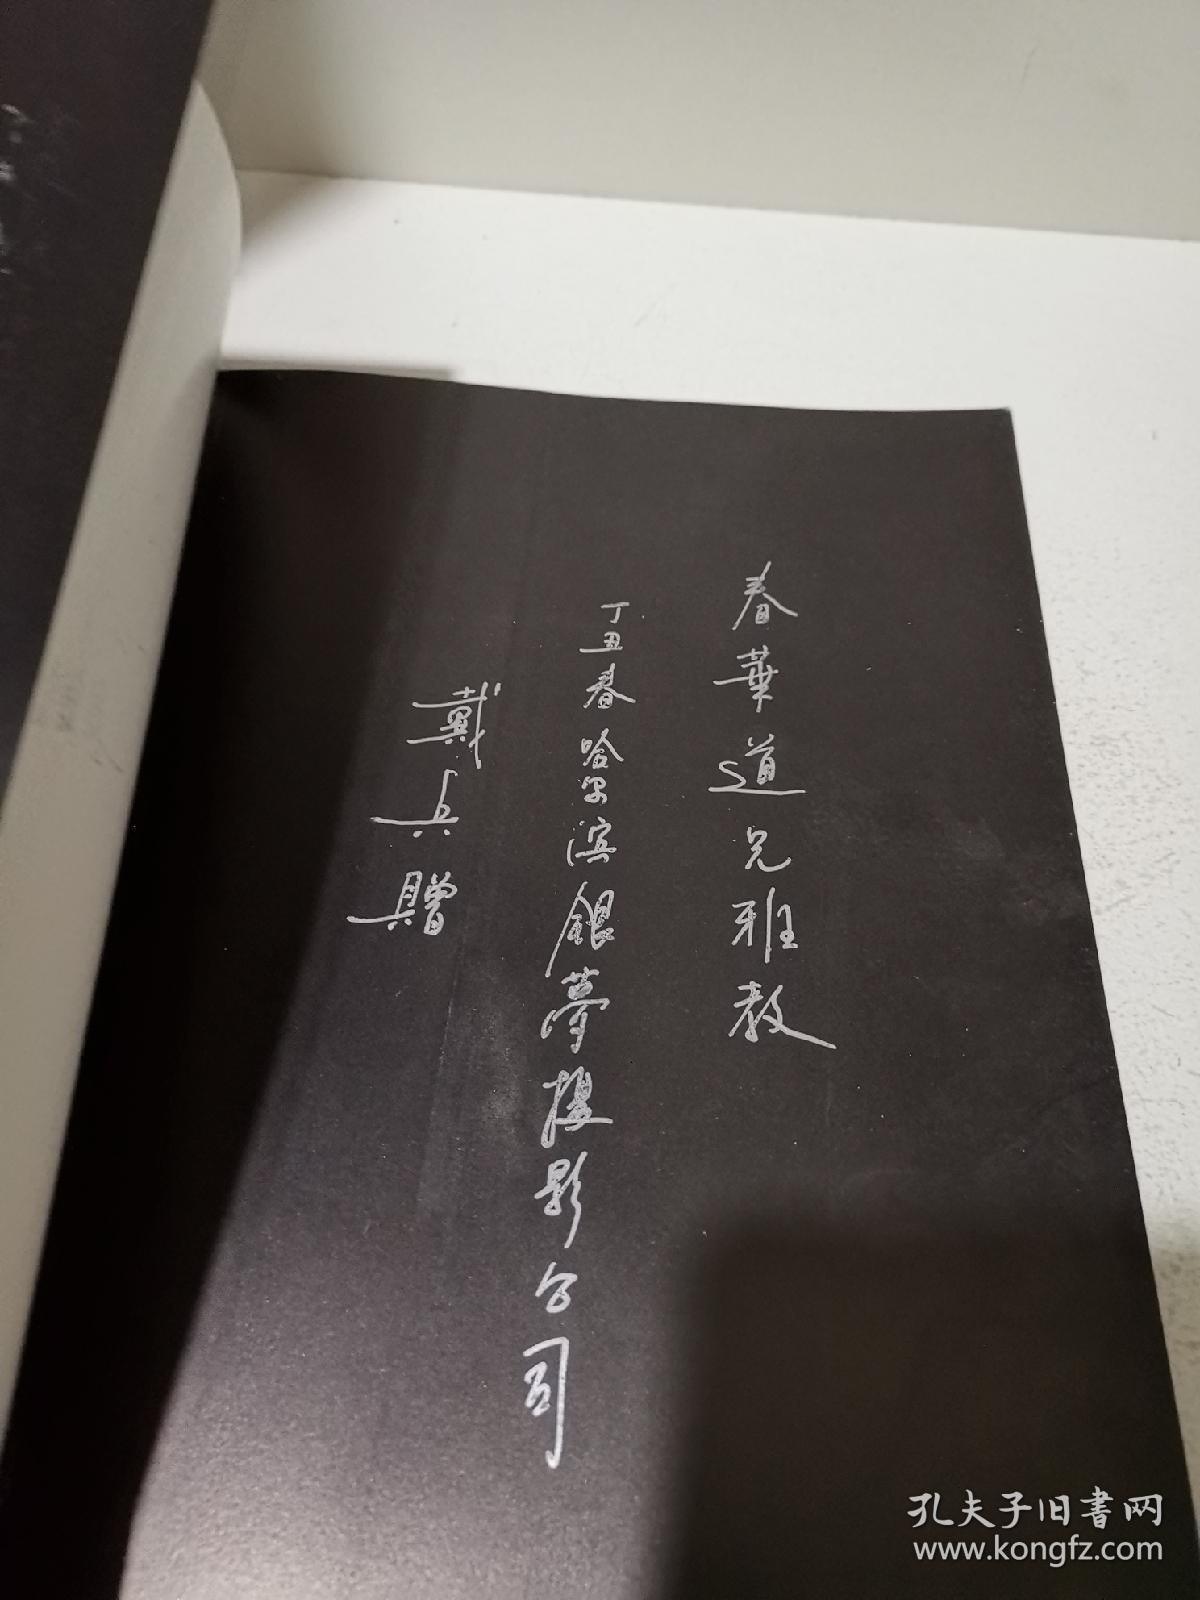 春華道兄雅教
丁丑春哈尔滨銀夢摄影公司
戴兵贈
孔夫子旧書网
www.kongfz.com